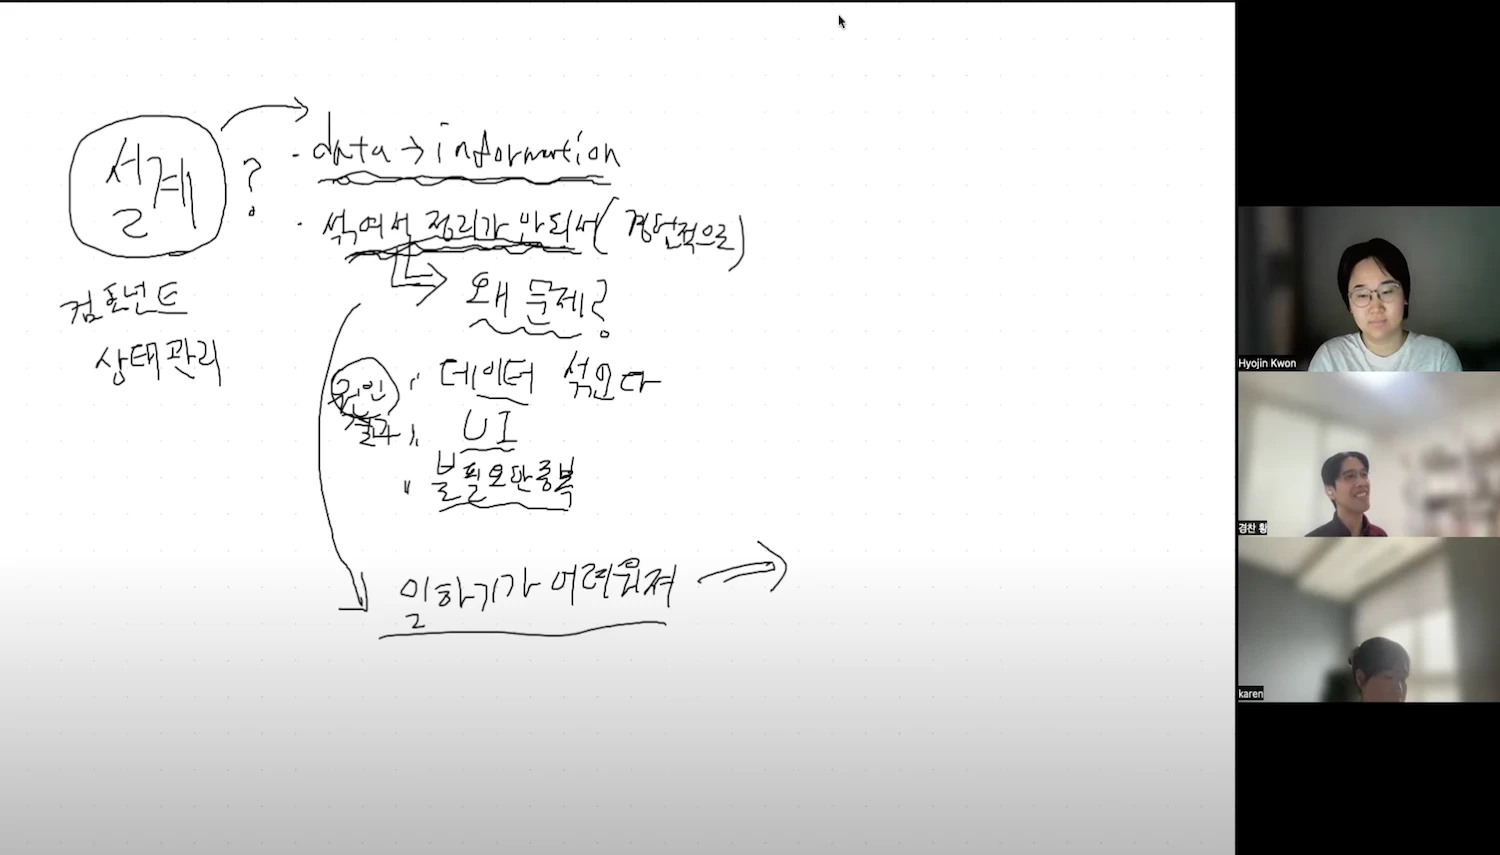 설계 ?
컴포넌트
상태관리
· data → information
· 섞여서 정리가 안되서 (경험적으로)
왜 문제?
원인 " 데이터 섞인다
결과 " UI
" 불필요한 중복
일하기가 어려워져
Hyojin Kwon
경찬 황
karen